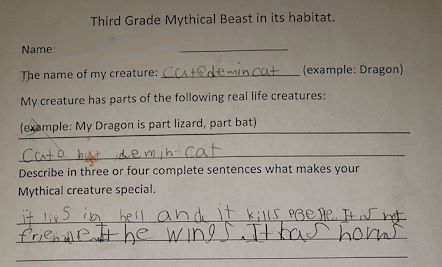 Third Grade Mythical Beast in its habitat.
Name
The name of my creature: catedemincat (example: Dragon)
My creature has parts of the following real life creatures:
(example: My Dragon is part lizard, part bat)
cato bat demin-cat
Describe in three or four complete sentences what makes your
Mythical creature special.
it livs in hell and it kills PeoPle. It is not
friendle It he wings. It has horns